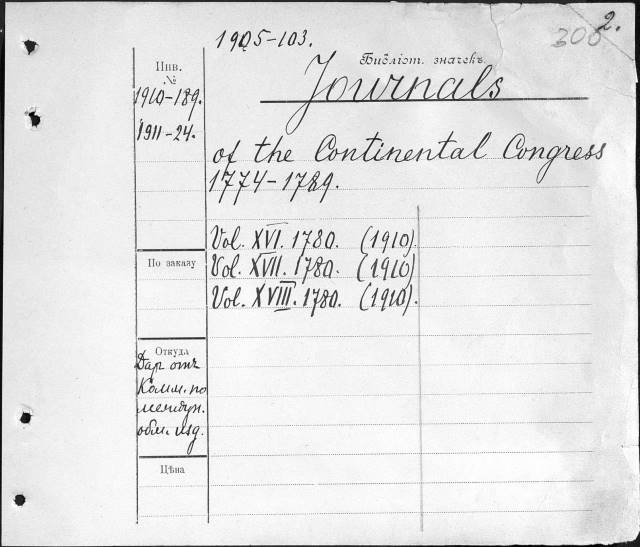 2.
300
1905-103.
Инв.
№
Библіот. значекъ.
Journals
1910-189.
1911-24.
of the Continental Congress
1774-1789.
Vol. XVI. 1780. (1910).
По заказу
Vol. XVII. 1780. (1910)
Vol. XVIII. 1780. (1910).
Откуда
Дар отъ
Комм. по
междун.
обм. изд.
Цѣна